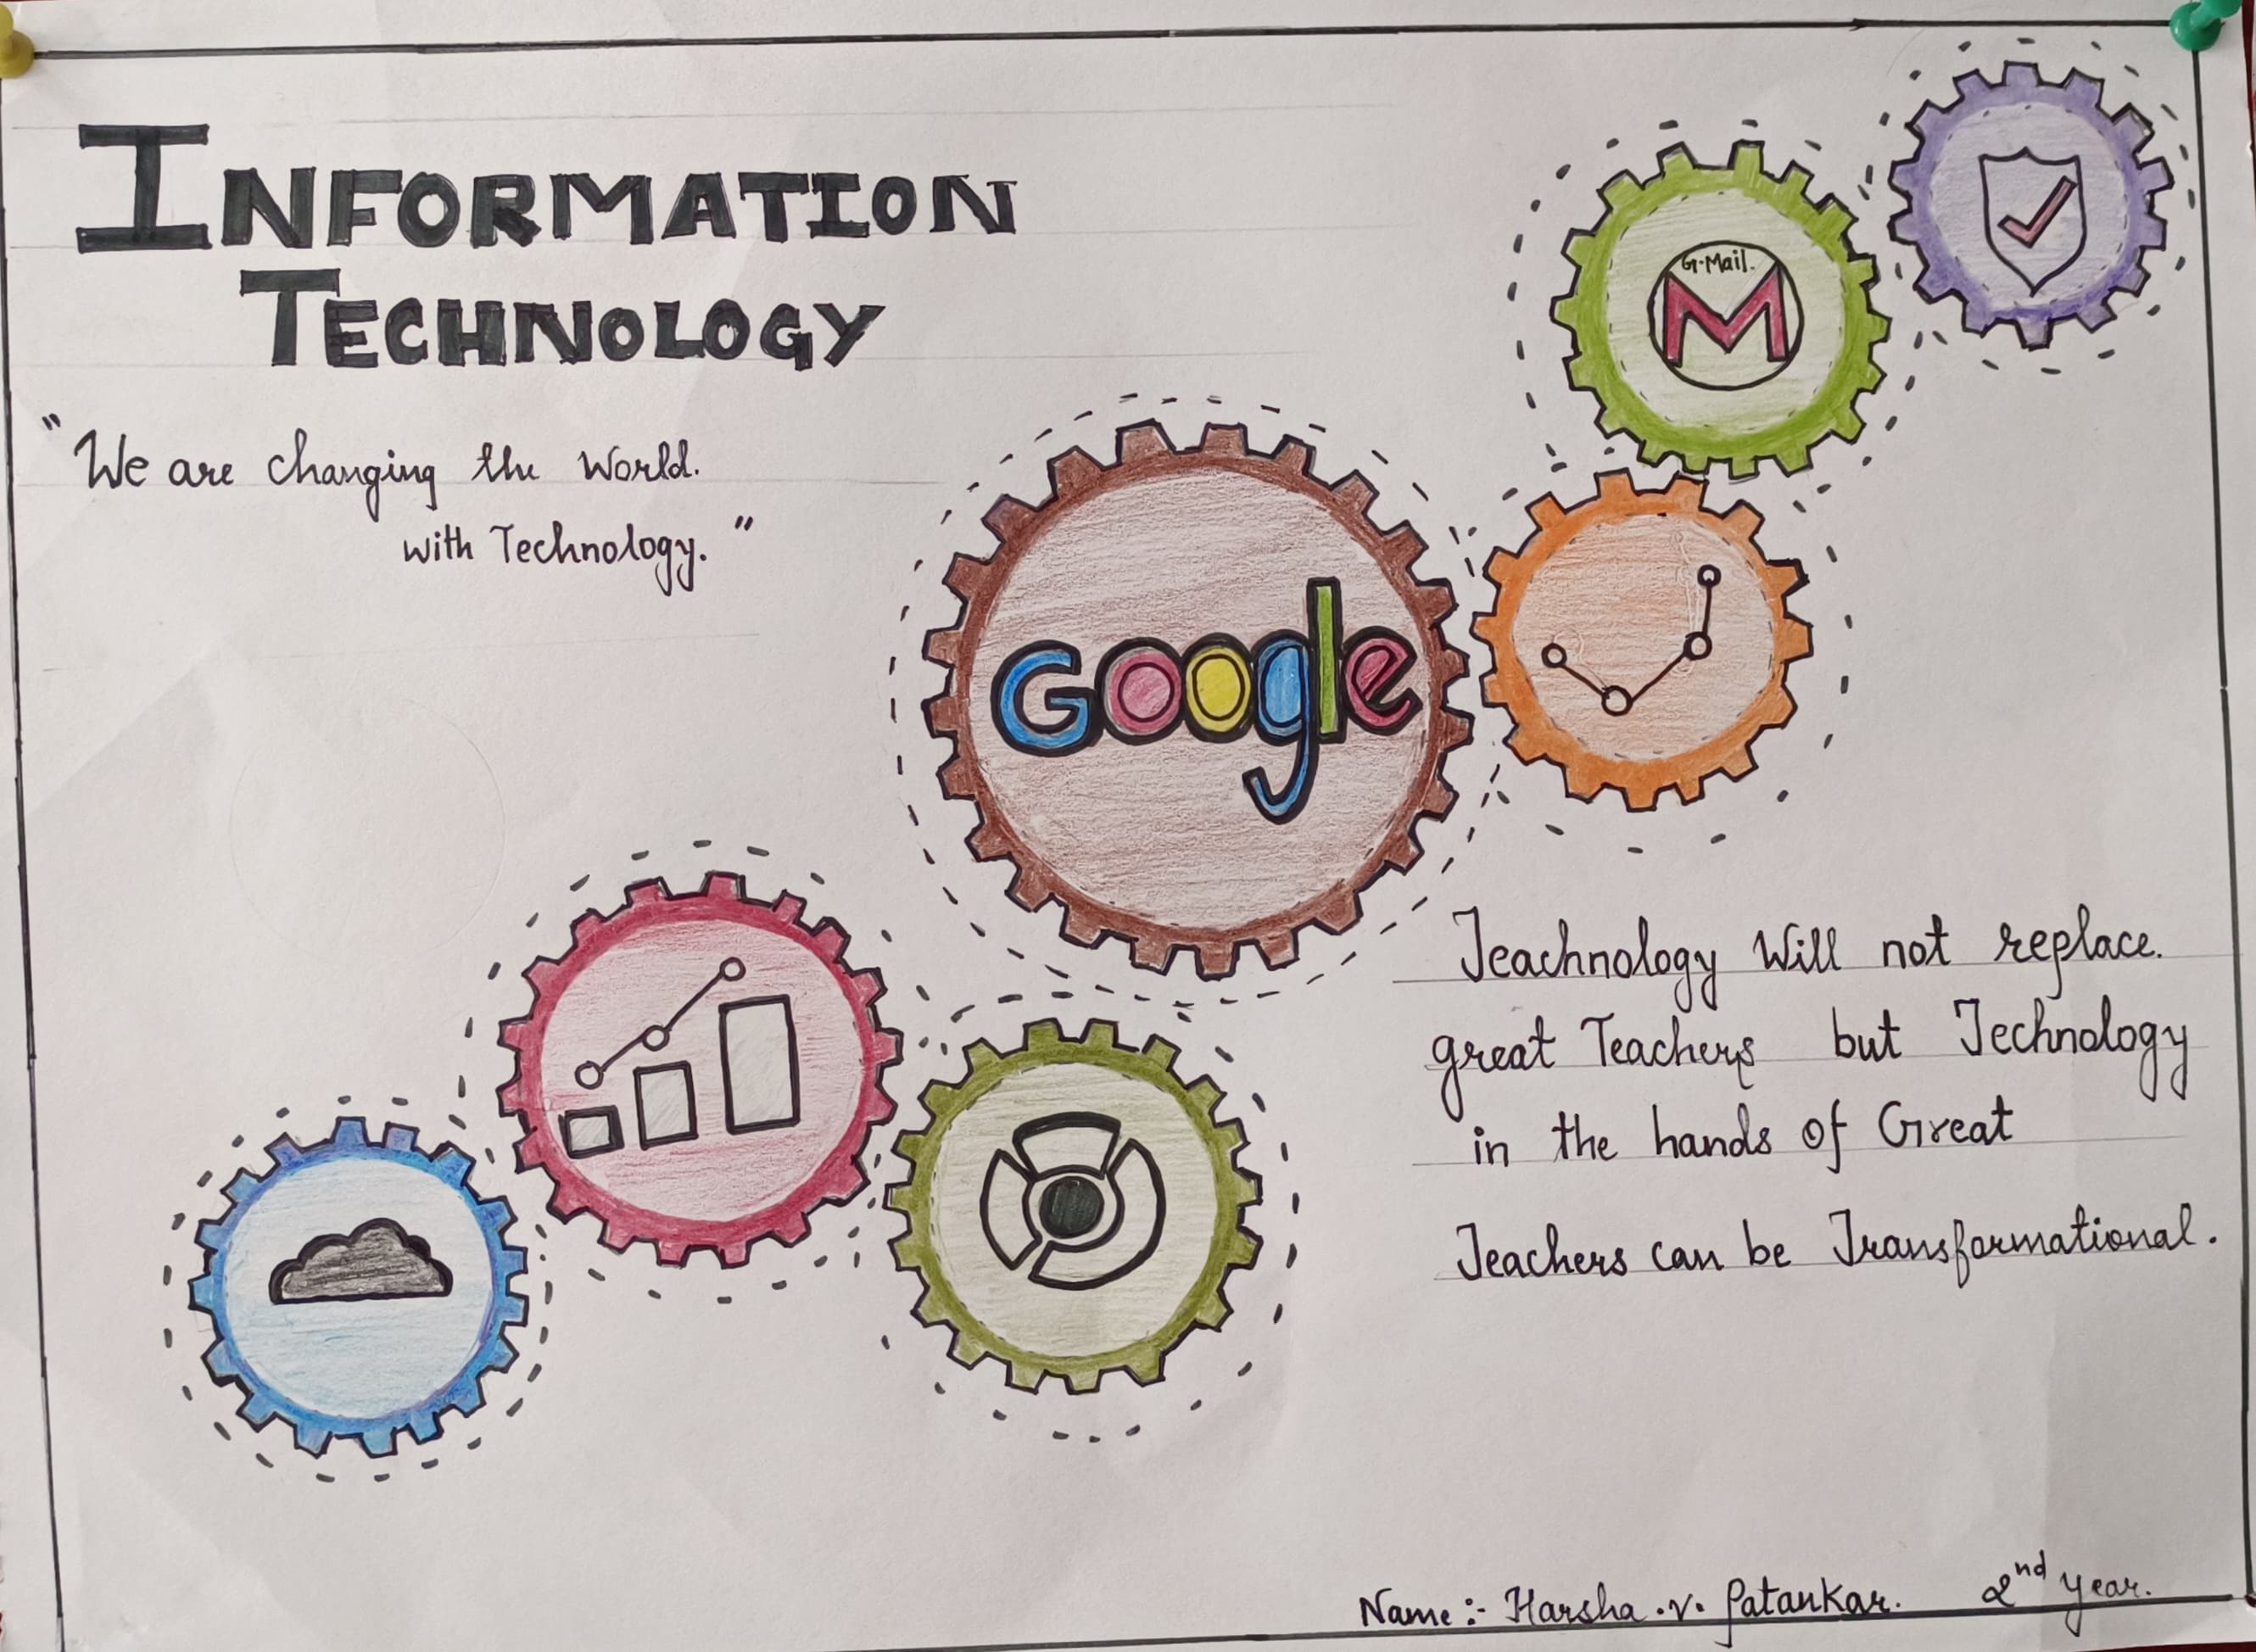 INFORMATION
TECHNOLOGY
"We are changing the World.
with Technology."
G-Mail.
M
Google
Teachnology Will not replace.
great Teachers but Technology
in the hands of Great
Teachers can be Transformational.
Name :- Harsha .v. Patankar. 2nd year.